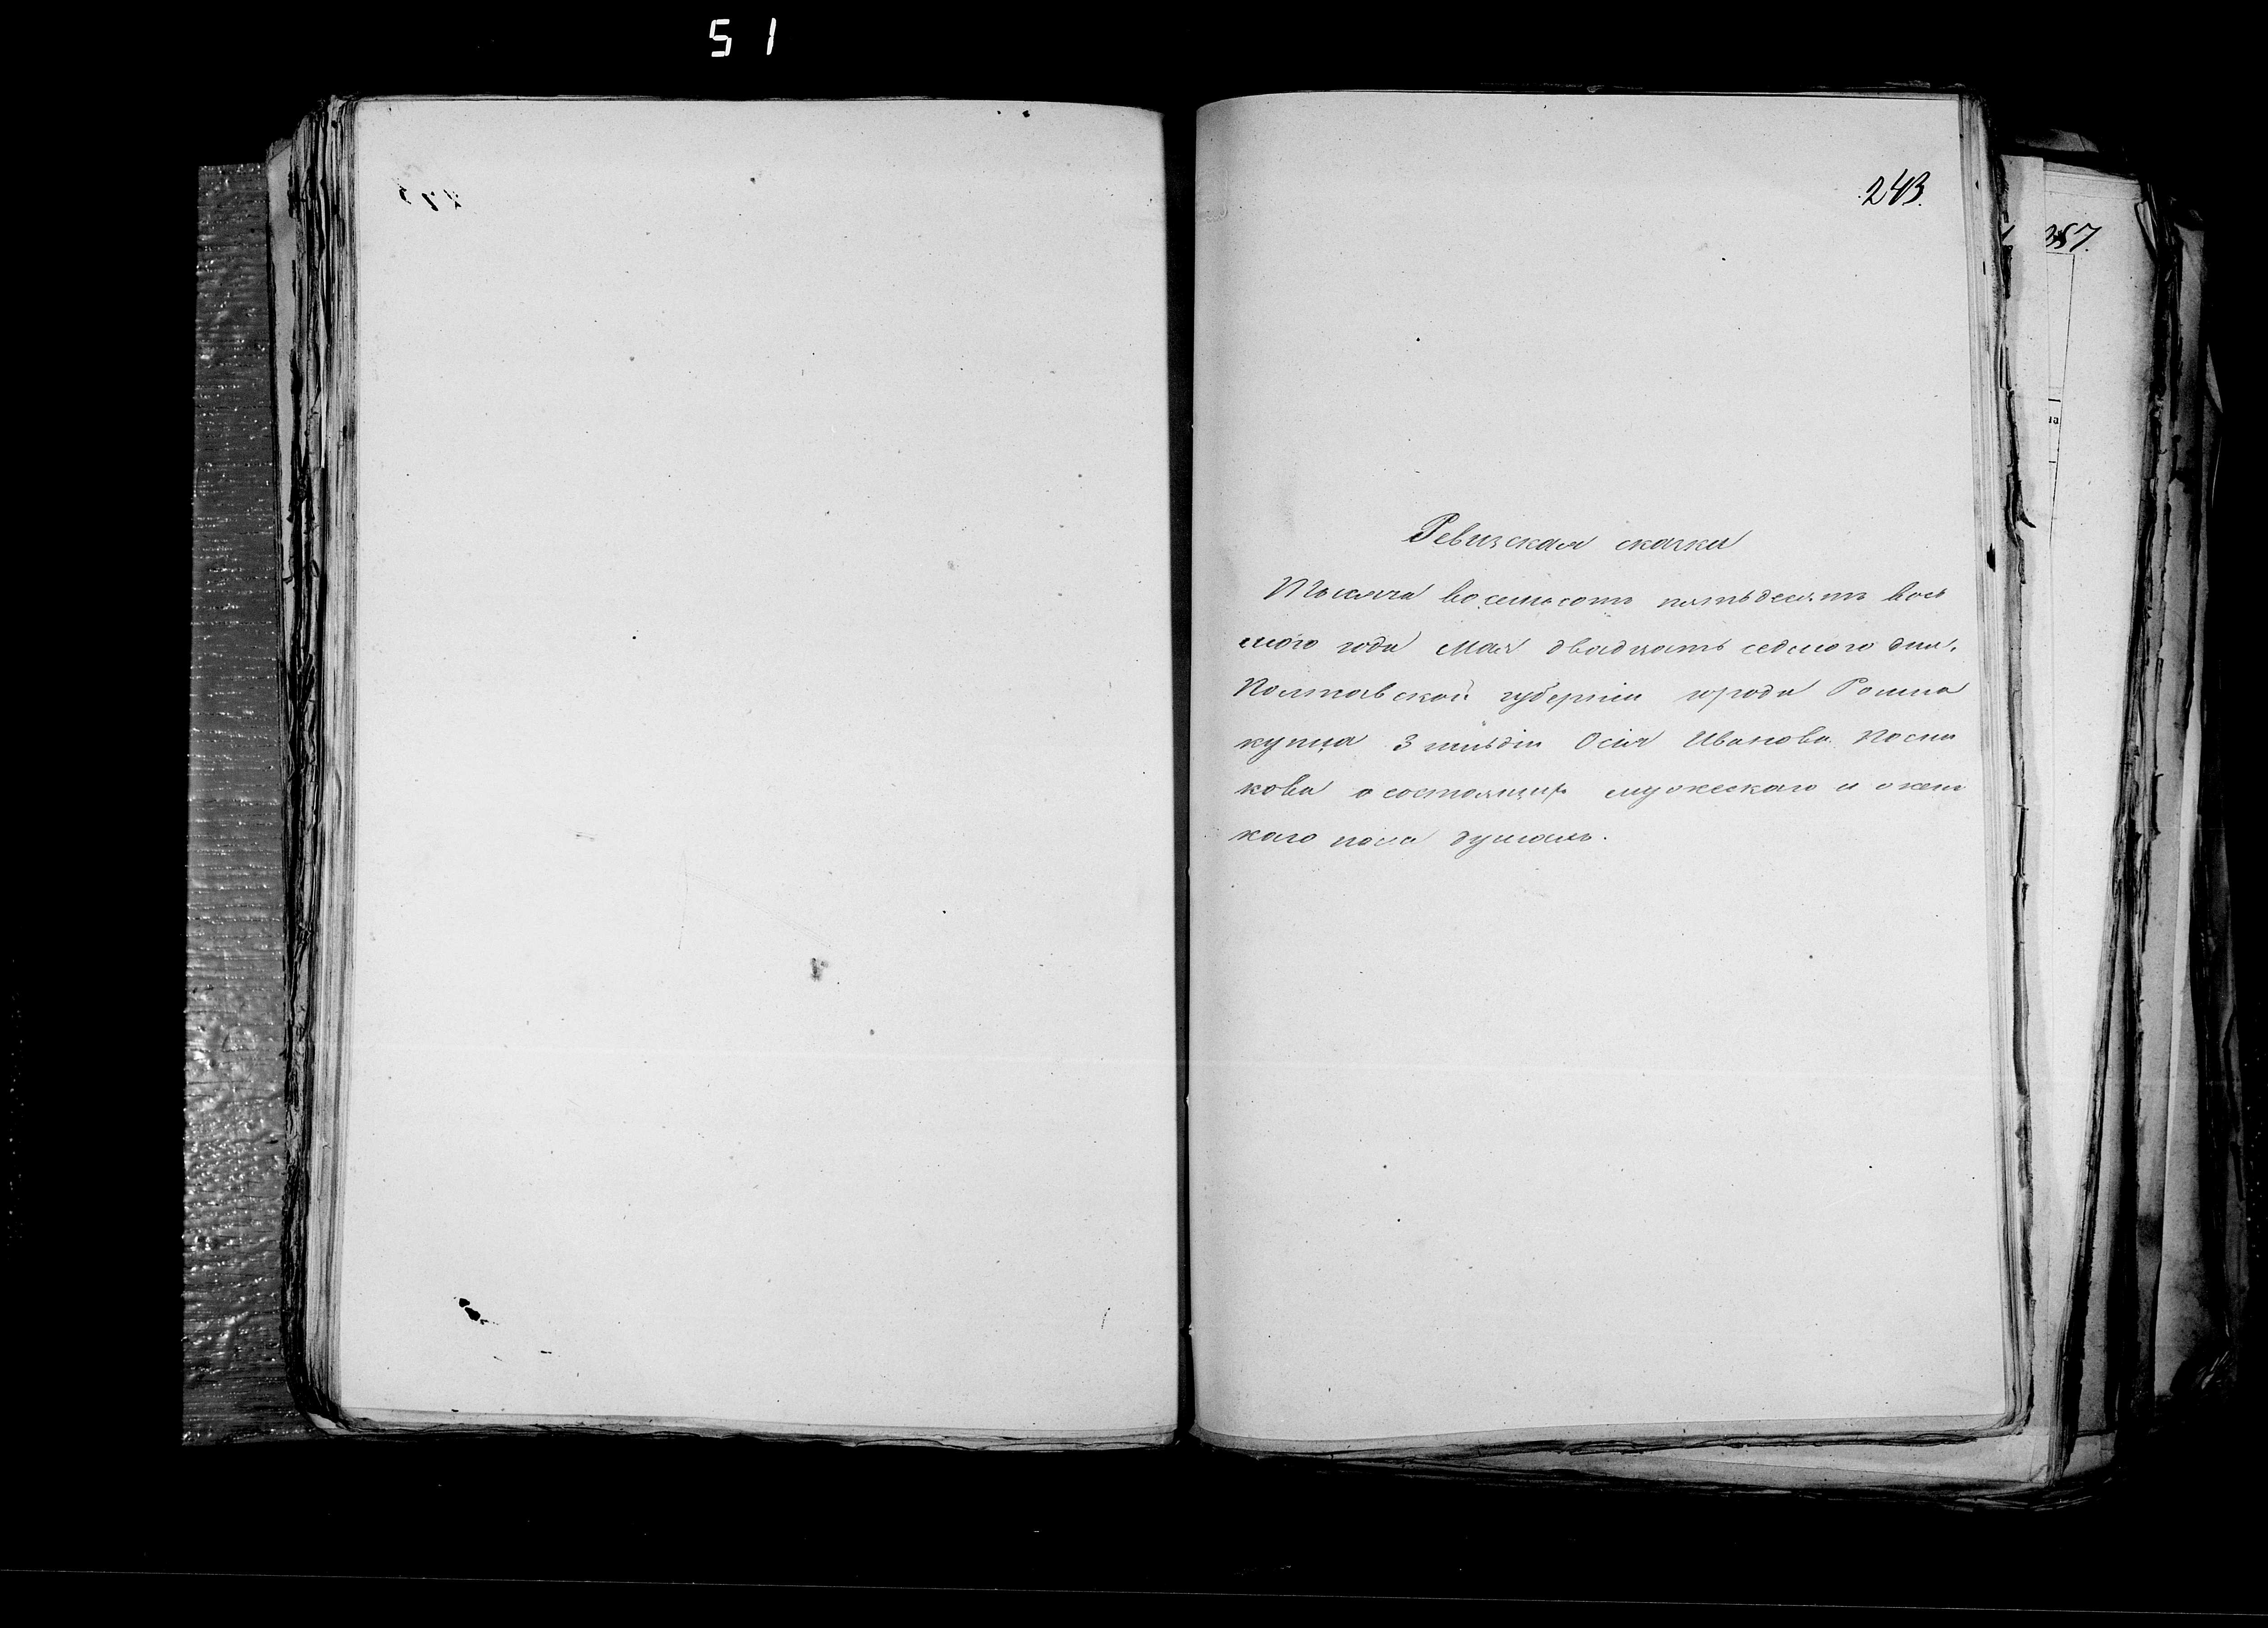 51
243.
357.
Ревизская сказка
Тысяча восемьсотъ пятьдесятъ вось
мого года Мая двадцать седмого дня,
Полтавской губерніи города Ромна
купца 3 гильдіи Осіи Иванова Посни
кова о состоящих мужескаго и женс
каго пола душахъ.